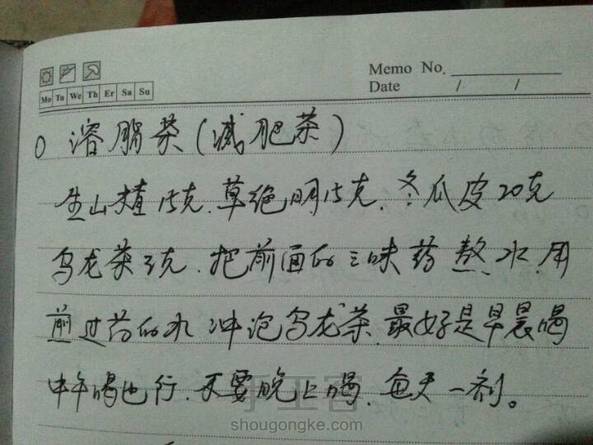 Memo No.
Date / /
Mo Tu We Th Er Sa Su
0 溶脂茶(减肥茶)
生山楂15克.草绝明15克.冬瓜皮20克
乌龙茶3克.把前面的三味药熬水.用
煎过药的水冲泡乌龙茶.最好是早晨喝
中午喝也行.不要晚上喝.每天一剂。
手工客
shougongke.com